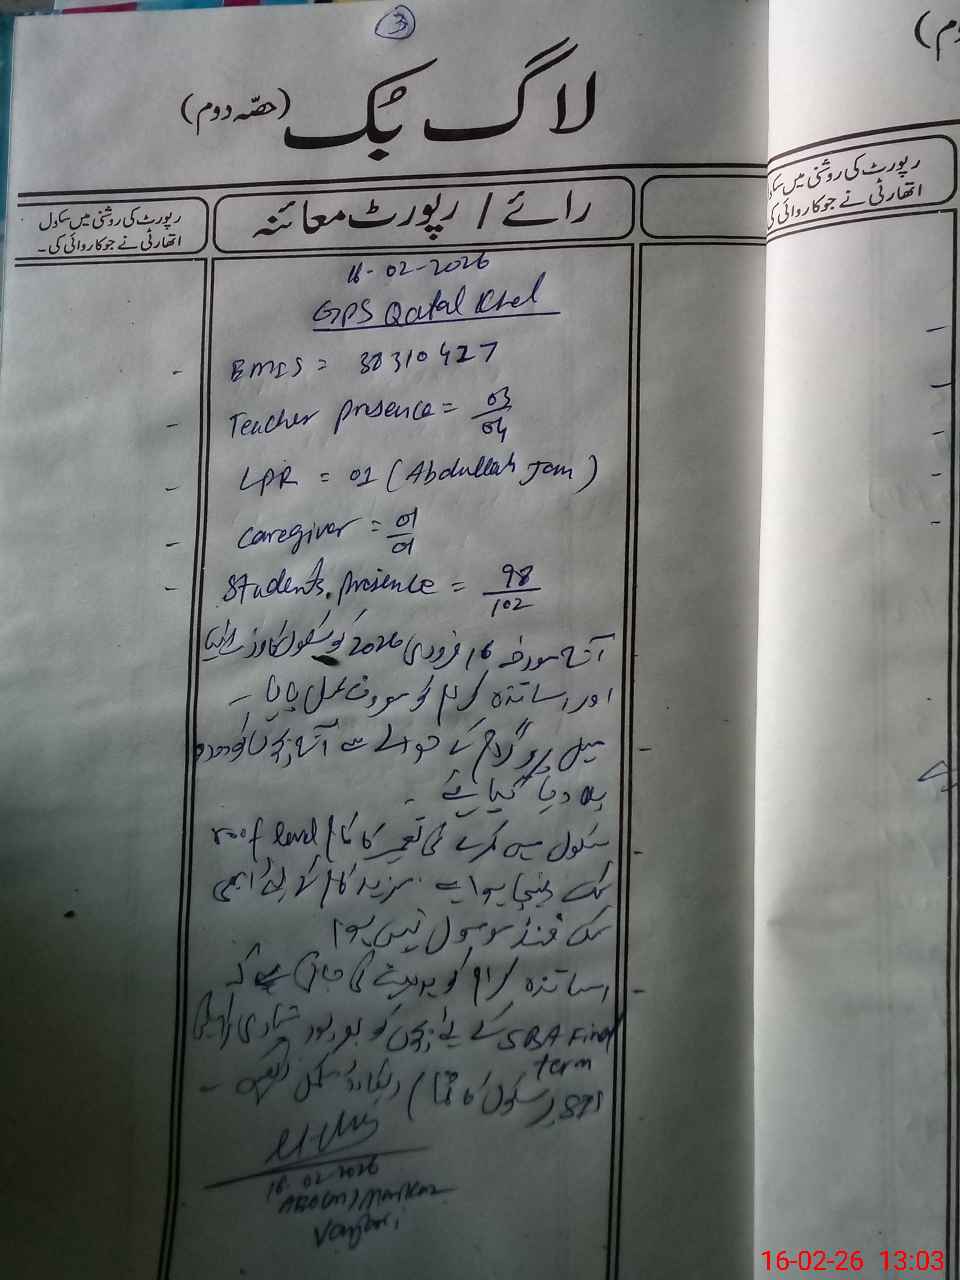 3
لاگ بُک (حصّہ دوم)
دم)
رائے / رپورٹ معائنہ
رپورٹ کی روشنی میں سکول
اتھارٹی نے جو کاروائی کی۔
رپورٹ کی روشنی میں سکول
اتھارٹی نے جو کاروائی کی
16-02-2026
GPS Qatal Khel
EMIS = 38310427
Teacher presence = 03/04
LPR = 01 (Abdullah Jam)
Caregiver = 01/01
Students presence = 98/102
آج مورخہ 16 فروری 2026 کو سکول کا وزٹ کیا
اور اساتذہ کرام کو مصروف عمل پایا -
میل پروگرام کے حوالے سے آج بچوں کو دودھ
دیا گیا ہے -
سکول میں کمرے کی تعمیر کا کام roof level
تک پہنچا ہوا ہے۔ مزید کام کے لئے ابھی
تک فنڈ موصول نہیں ہوا
اساتذہ کرام کو ہدایت کی جاتی ہے کہ
SBA Final term کے لیے بچوں کو بھرپور تیاری کرائیں
STI (سکول کا ) ریکارڈ مکمل رکھیں -
16-02-2026
AEO (M) Markaz
16-02-26 13:03